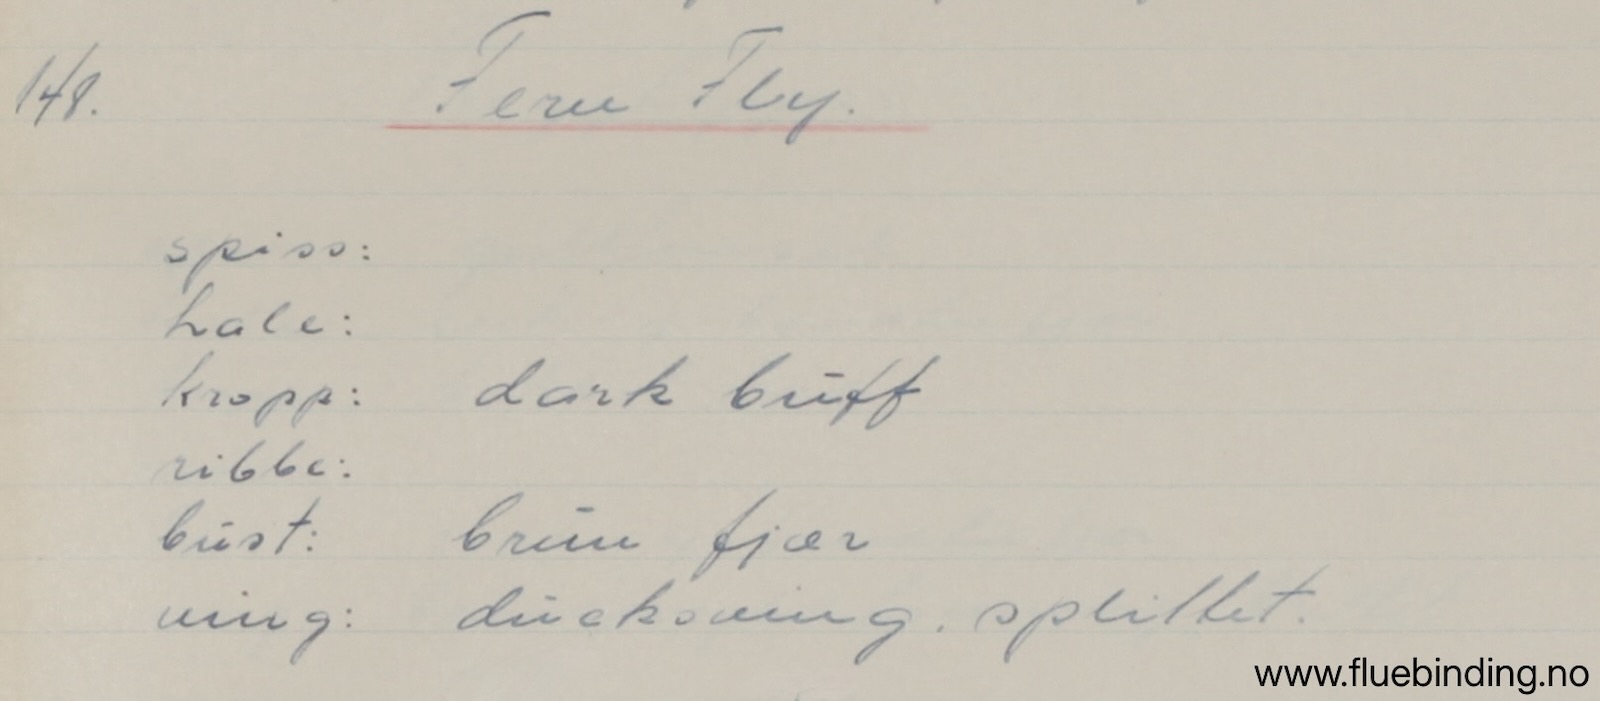 148. Fern Fly.
spiss:
hale:
kropp: dark buff
ribbe:
bust: brun fjær
ving: duckswing. splittet.
www.fluebinding.no